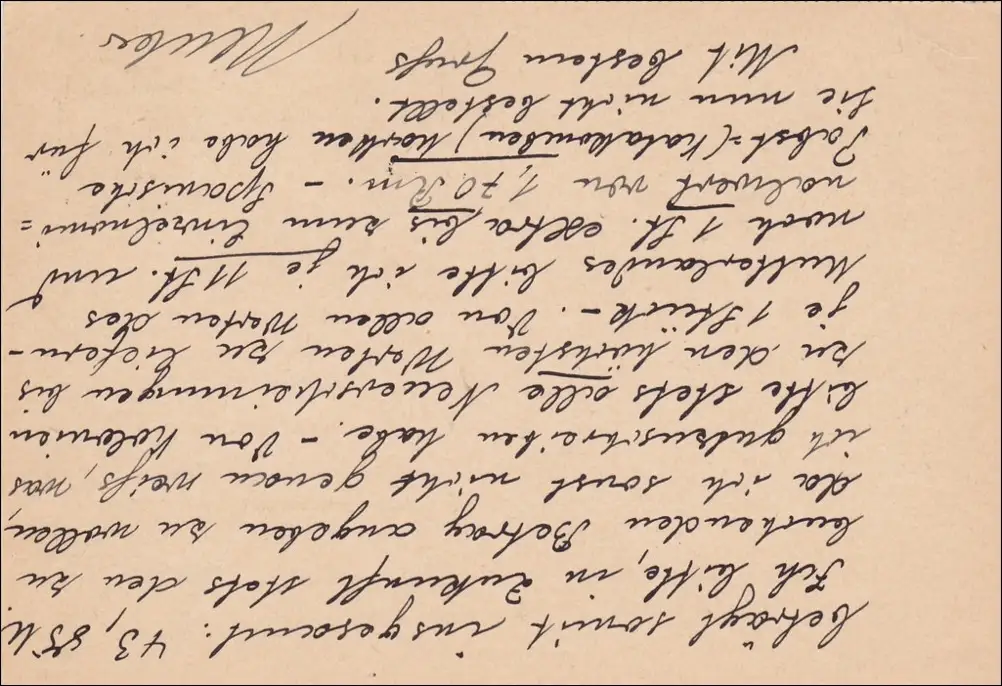 beträgt somit insgesamt: 43,85 M.
Ich bitte, in Zukunft stets den zu
buchenden Betrag angeben zu wollen,
da ich sonst nicht genau weiß, was
ich gutzuschreiben habe. - Von Kolonien
bitte stets alle Neuerscheinungen bis
zu den höchsten Werten zu liefern -
je 1 Stück -. Von allen Werten des
Mutterlandes bitte ich je 11 St. und
noch 1 St. extra bis zum Einzelnomi=
nalwert von 1,70 Rm. - Spanische
Pabst=(Katakomben) Marken habe ich für
Sie nun nicht bestellt.
Mit bestem Gruß